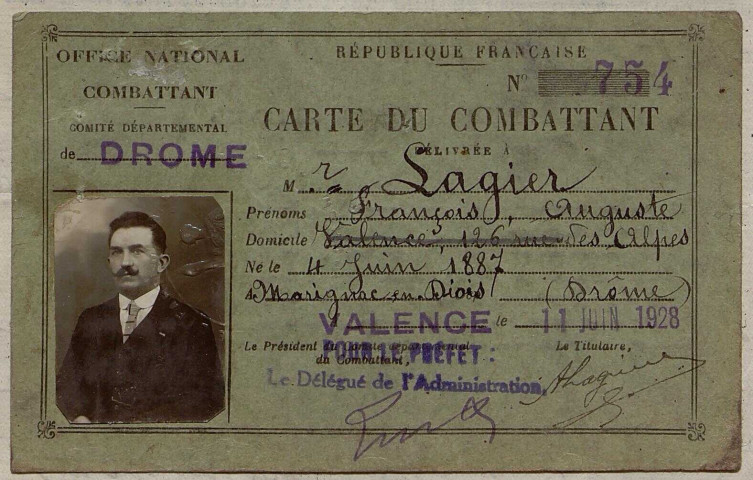 OFFICE NATIONAL
COMBATTANT
COMITÉ DÉPARTEMENTAL
de DROME
RÉPUBLIQUE FRANÇAISE
N° 754
CARTE DU COMBATTANT
DÉLIVRÉE À
M r Lagier
Prénoms François, Auguste
Domicile Valence, 126 rue des Alpes
Né le 4 Juin 1887
à Marignac-en-Diois (Drôme)
VALENCE le 11 JUIN 1928
Le Président du Comité départemental
du Combattant,
POUR LE PREFET:
Le Délégué de l'Administration,
Le Titulaire,
ALagier